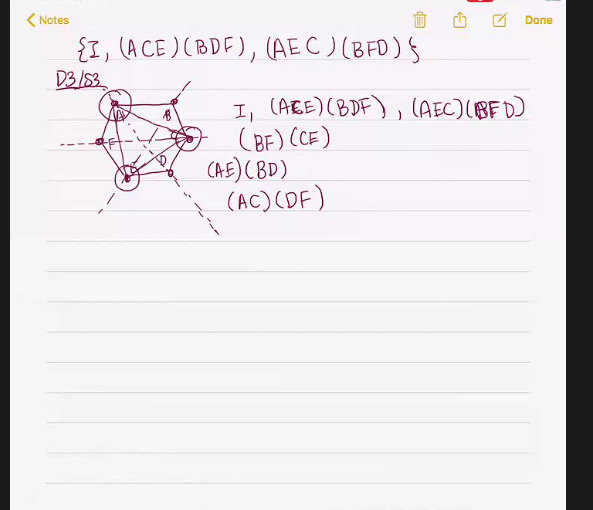 Notes Done
{I, (ACE)(BDF), (AEC)(BFD)}
D3/S3
A B
I, (ACE)(BDF), (AEC)(BFD)
F C
(BF)(CE)
E D
(AE)(BD)
(AC)(DF)